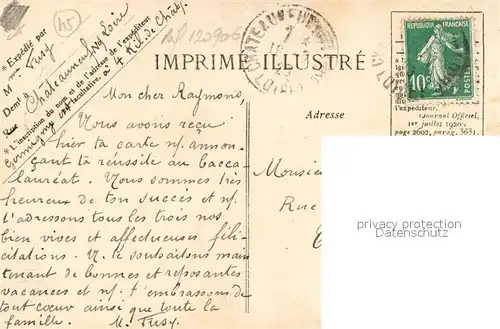 45
AP 129906
* Expédié par
M Fusy
Demt à Chateauneuf sur Loire
Rue
* L'inscription du nom et de l'adresse de l'expéditeur
est facultative
Germigny 4 Kil. de Chatf.
CHATEAUNEUF
LOIRET
IMPRIMÉ ILLUSTRÉ
10c
l'expéditeur.
(Journal Officiel,
1er juillet 1920,
page 2002, parag. 3631.
Adresse
Mon cher Raymond
Vous avons reçu
hier ta carte n/. annon-
çant ta réussite au bacca-
lauréat. Nous sommes très
heureux de ton succès et n/.
t'adressons tous les trois nos
bien vives et affectueuses féli-
citations. N. te souhaitons main
tenant de bonnes et reposantes
vacances et n/. t'embrassons de
tout cœur ainsi que toute la
famille. M. Fusy.
Monsieu
Rue
privacy protection
Datenschutz